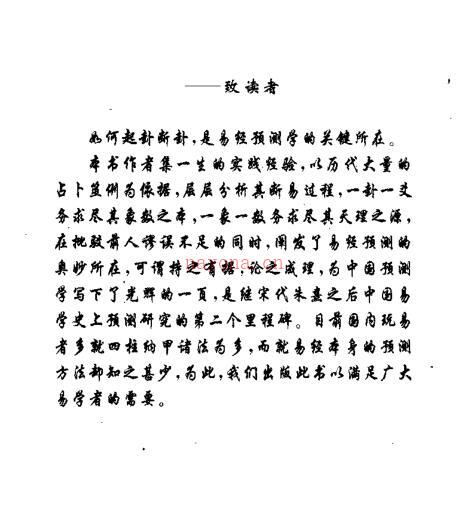 ——致读者
如何起卦断卦,是易经预测学的关键所在。
本书作者集一生的实践经验,以历代大量的
占卜筮例为依据,层层分析其断易过程,一卦一爻
务求尽其象数之本,一象一数务求尽其天理之源,
在批驳前人谬误不足的同时,阐发了易经预测的
奥妙所在,可谓持之有据,论之成理,为中国预测
学写下了光辉的一页,是继宋代朱熹之后中国易
学史上预测研究的第二个里程碑。目前国内玩易
者多就四柱纳甲诸法为多,而就易经本身的预测
方法却知之甚少,为此,我们出版此书以满足广大
易学者的需要。